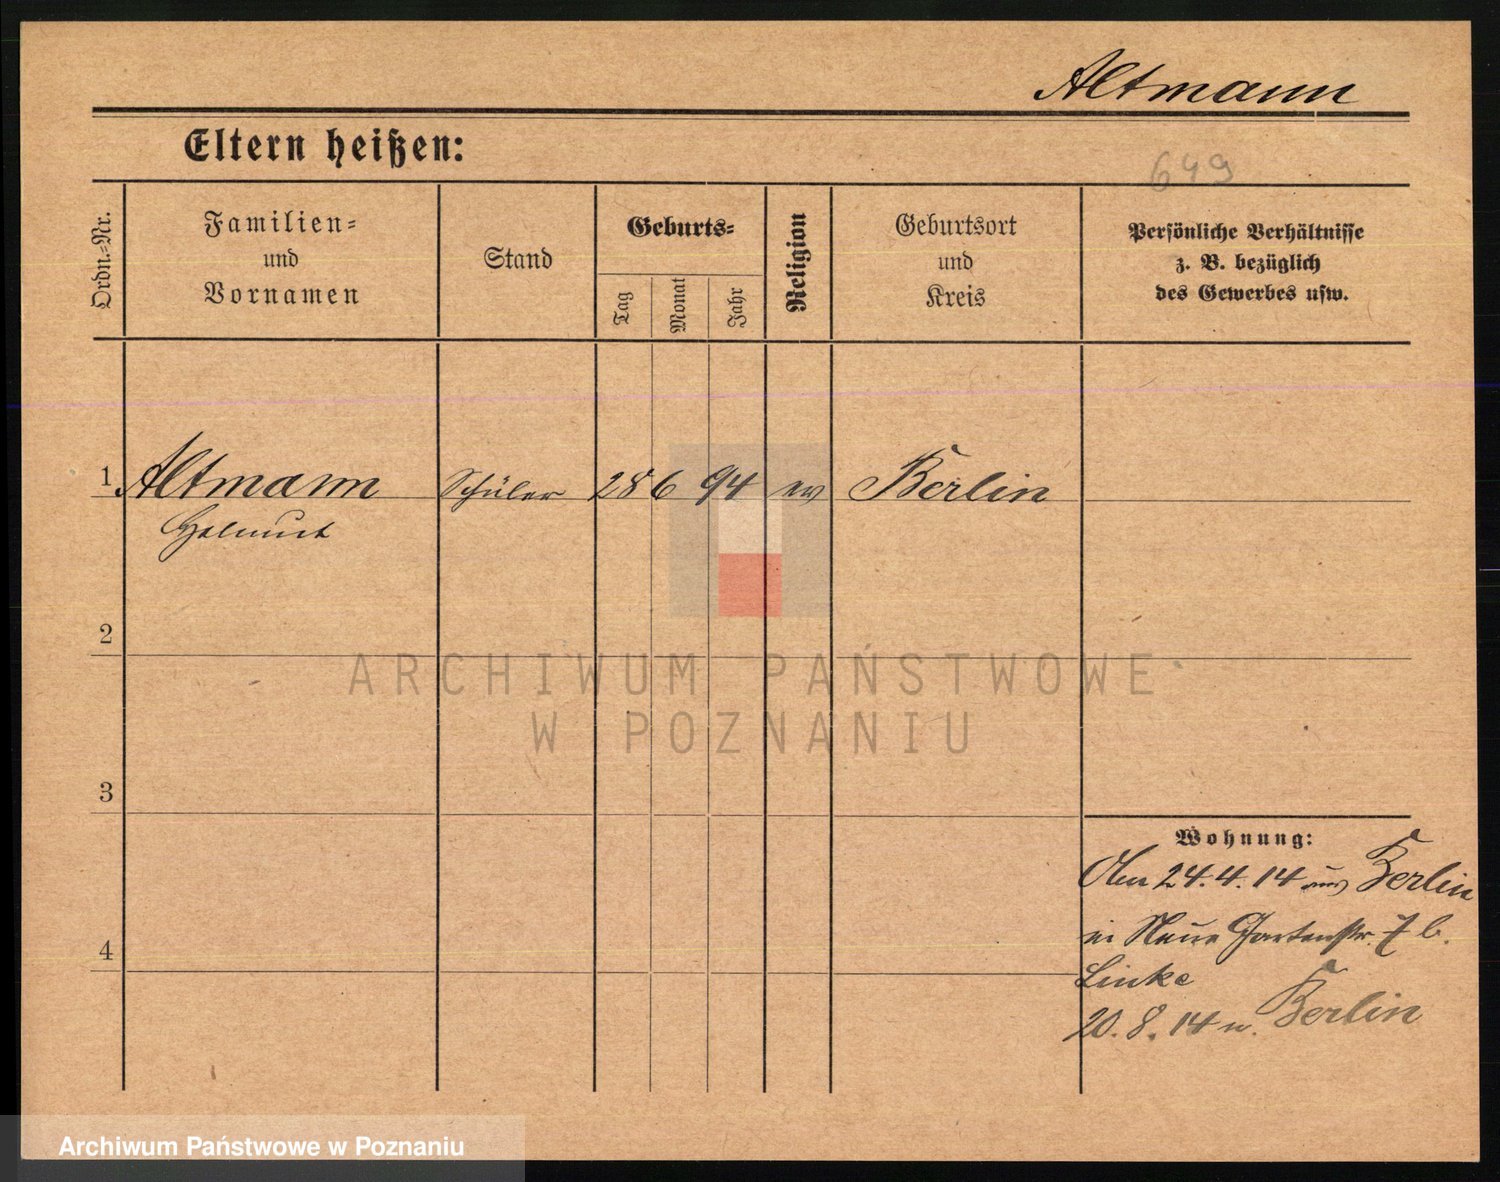 Altmann
Eltern heißen:
649
Ordn.-Nr.
Familien-
und
Vornamen
Stand
Geburts-
Tag
Monat
Jahr
Religion
Geburtsort
und
Kreis
Persönliche Verhältnisse
z. B. bezüglich
des Gewerbes usw.
1 Altmann Schüler 28 6 94 ev Berlin
Helmut
2
ARCHIWUM PAŃSTWOWE
W POZNANIU
3
Wohnung:
24.4.14 aus Berlin
in Neue Gartenstr. 7 b.
Linke
4
20.8.14 n. Berlin
Archiwum Państwowe w Poznaniu